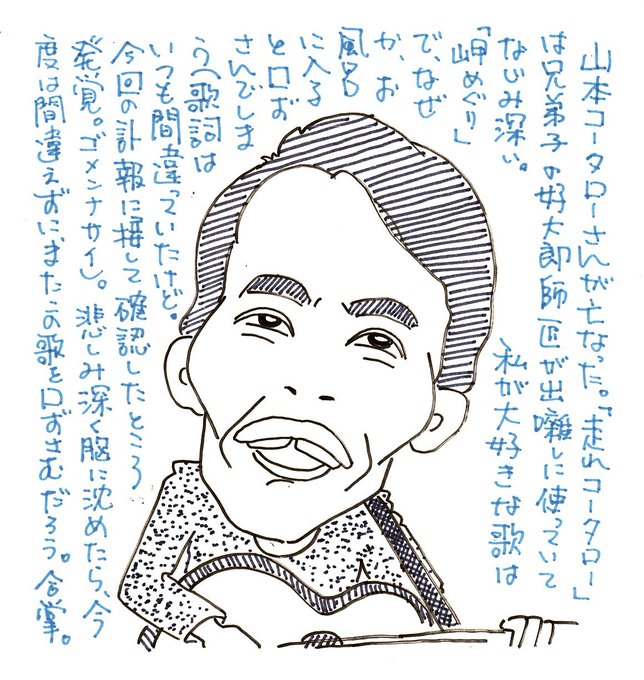 山本コータローさんが亡なった。「走れコータロー」
は兄弟子の好太郎師匠が出囃しに使っていて
なじみ深い。私が大好きな歌は
「岬めぐり」
で、なぜ
か、お
風呂
に入る
と口ず
さんでしま
う(歌詞は
いつも間違っていたけど。
今回の訃報に接して確認したところ
発覚。ゴメンナサイ)。悲しみ深く胸に沈めたら、今
度は間違えずに、またこの歌を口ずさむだろう。合掌。